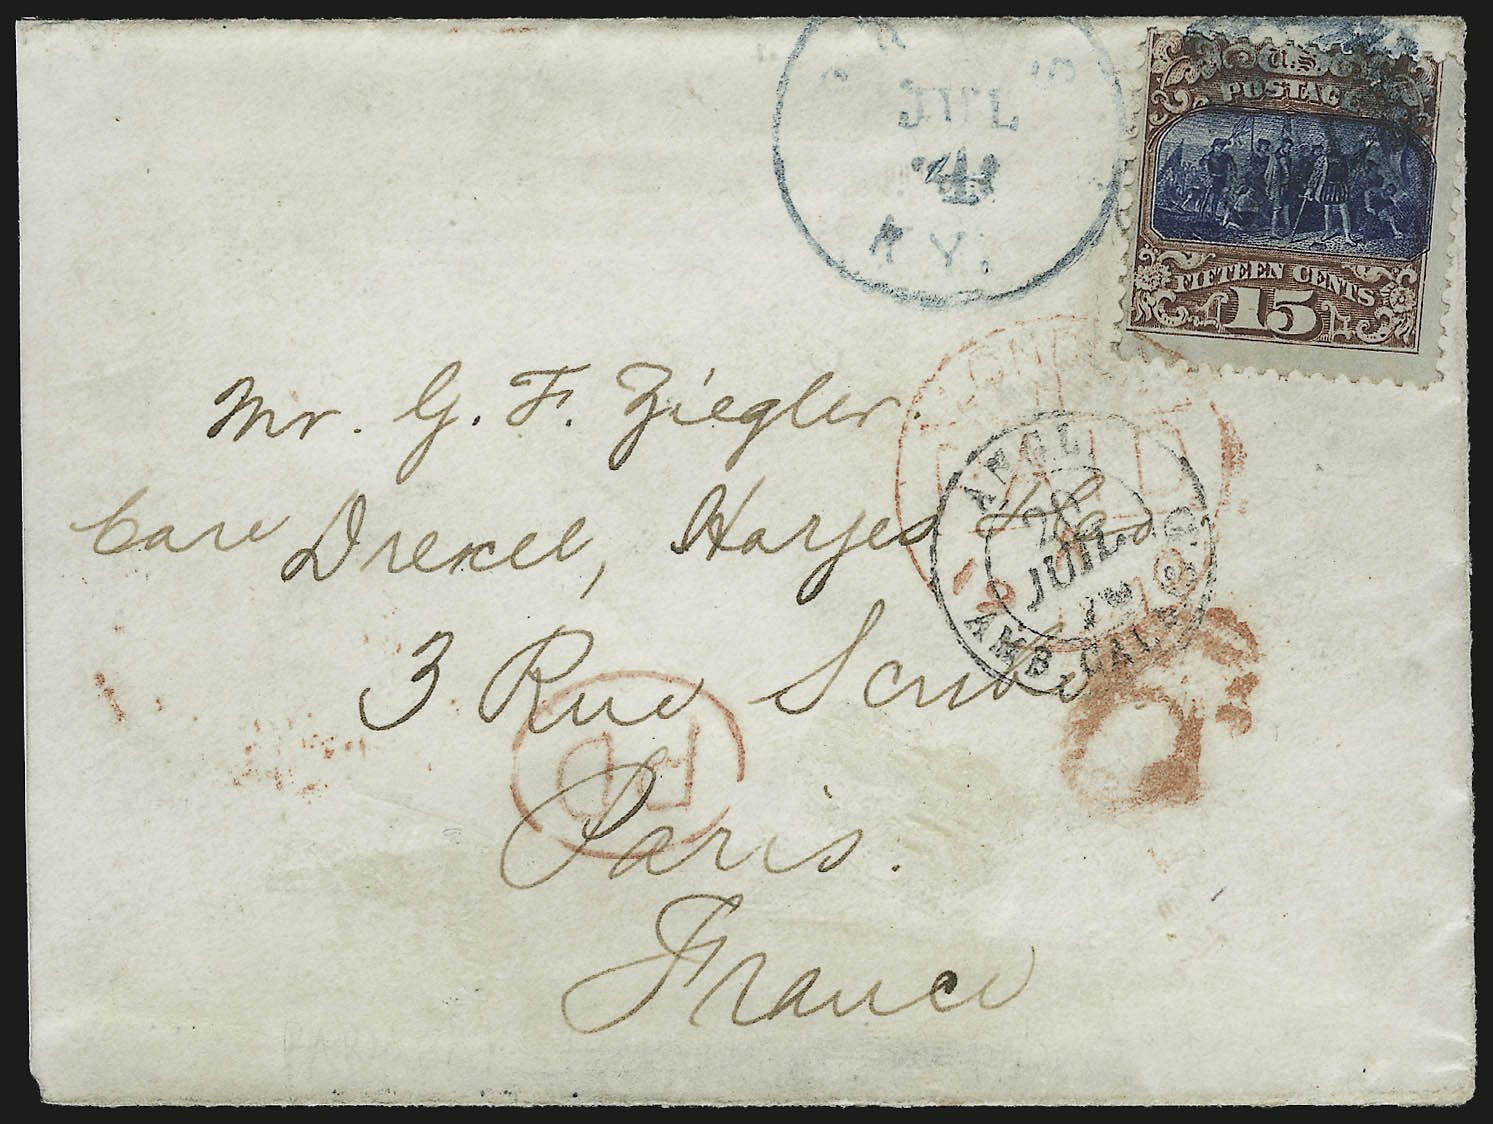 JUL
4
KY.
U.S.
POSTAGE
FIFTEEN CENTS
15
Mr. G. F. Ziegler.
Care Drexel, Harjes & Co
3 Rue Scribe
Paris.
France
ANGL.
28
JUIL
AMB. CALAIS
PAID
PD